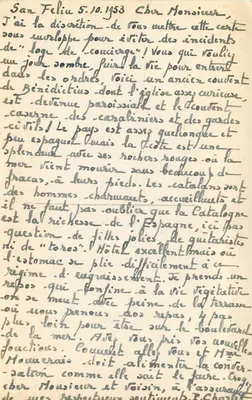 San Feliu 5.10.1953 Cher Monsieur,
J'ai la discrétion de vous mettre cette carte
sous enveloppe pour éviter des incidents
de "loge de concierge"! Vous qui vouliez
un jour, fuir la vie pour entrer
dans les ordres, voici un ancien couvent
de Bénédictins dont l'église assez curieuse
est devenue paroissiale et le couvent
caserne des carabiniers et des gardes
civils! Le pays est assez quelconque et
peu espagnol mais la côte est une
splendeur avec ses rochers rouges où la
mer vient mourir sans beaucoup de
fracas à leurs pieds. Les catalans sont
des hommes charmants, accueillants et
il ne faut pas oublier que la Catalogne
est la richesse de l'Espagne, ici pas
question de filles jolies, de guitaristes
ni de "toros". Hôtel excellent mais où
l'estomac se plie difficilement à un
régime d'engraissement. Je prends un
repos qui confine à la vie végétative
on se meut avec peine de la terrasse
où nous prenons nos repas, 4 pas
plus loin pour être sur le boulevard
de la mer! Avez vous pris vos nouvelles
fonctions? Comment allez vous et Mme
doit alimenter la conver-
sation comme elle sait le faire. Croyez
cher Monsieur et Voisin, à l'assurance
de mes respectueux sentiments.